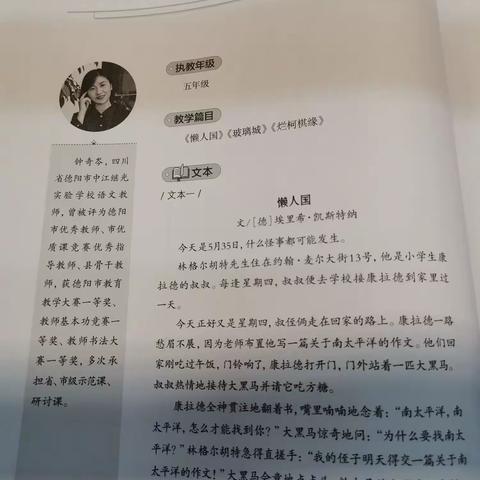 执教年级
五年级
教学篇目
《懒人国》《玻璃城》《烂柯棋缘》
文本
/ 文本一 /
懒人国
文/［德］埃里希·凯斯特纳
今天是5月35日，什么怪事都可能发生。
林格尔胡特先生住在约翰·麦尔大街13号，他是小学生康
拉德的叔叔。每逢星期四，叔叔便去学校接康拉德到家里过
一天。
今天正好又是星期四，叔侄俩走在回家的路上。康拉德一路
愁眉不展，因为老师布置他写一篇关于南太平洋的作文。他们回
家刚吃过午饭，门铃响了，康拉德打开门，门外站着一匹大黑马。
叔叔热情地接待大黑马并请它吃方糖。
康拉德全神贯注地翻着书，嘴里喃喃地念着：“南太平洋，南
太平洋，怎么才能找到你？”大黑马惊奇地问：“为什么要找南太
平洋？”林格尔胡特急得直搓手：“我的侄子明天得交一篇关于南
太平洋的作文！”大黑马会意地点点头
钟奇芩，四川
省德阳市中江继光
实验学校语文教
师，曾被评为德阳
市优秀教师、市优
质课竞赛优秀指
导教师、县骨干教
师，获德阳市教育
教学大赛一等奖、
教师基本功竞赛一
等奖、教师书法大
赛一等奖，多次承
担省、市级示范课、
研讨课。